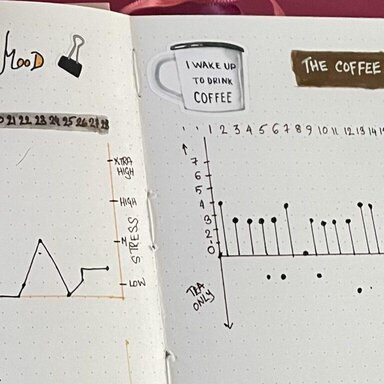 MOOD
21 22 23 24 25 26 27 28
XTRA
HIGH
HIGH
STRESS
N
LOW
I WAKE UP
TO DRINK
COFFEE
THE COFFEE
1 2 3 4 5 6 7 8 9 10 11 12 13 14
7
6
5
4
3
2
1
0
TEA
ONLY